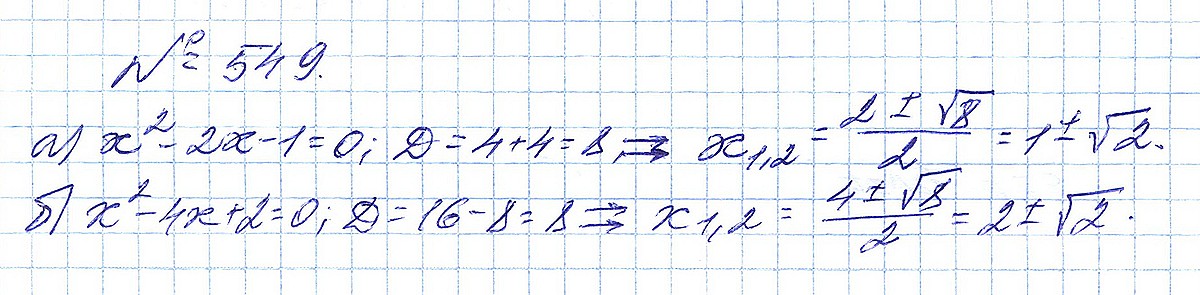 № 549.
а) x² - 2x - 1 = 0; D = 4 + 4 = 8 ⇒ x₁,₂ = (2 ± √8)/2 = 1 ± √2.
б) x² - 4x + 2 = 0; D = 16 - 8 = 8 ⇒ x₁,₂ = (4 ± √8)/2 = 2 ± √2.